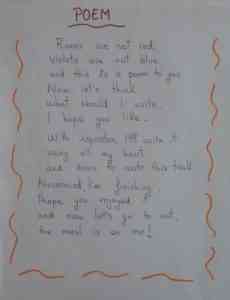 POEM
Roses are not red,
violets are not blue,
and this is a poem to you
Now let's think
what should I write
I hope you like.
With inspiration, I'll write it
using all my heart
and down to write this
Nevermind, I'm finishing
I hope you enjoyed it
and now let's go to eat,
the meal is on me!